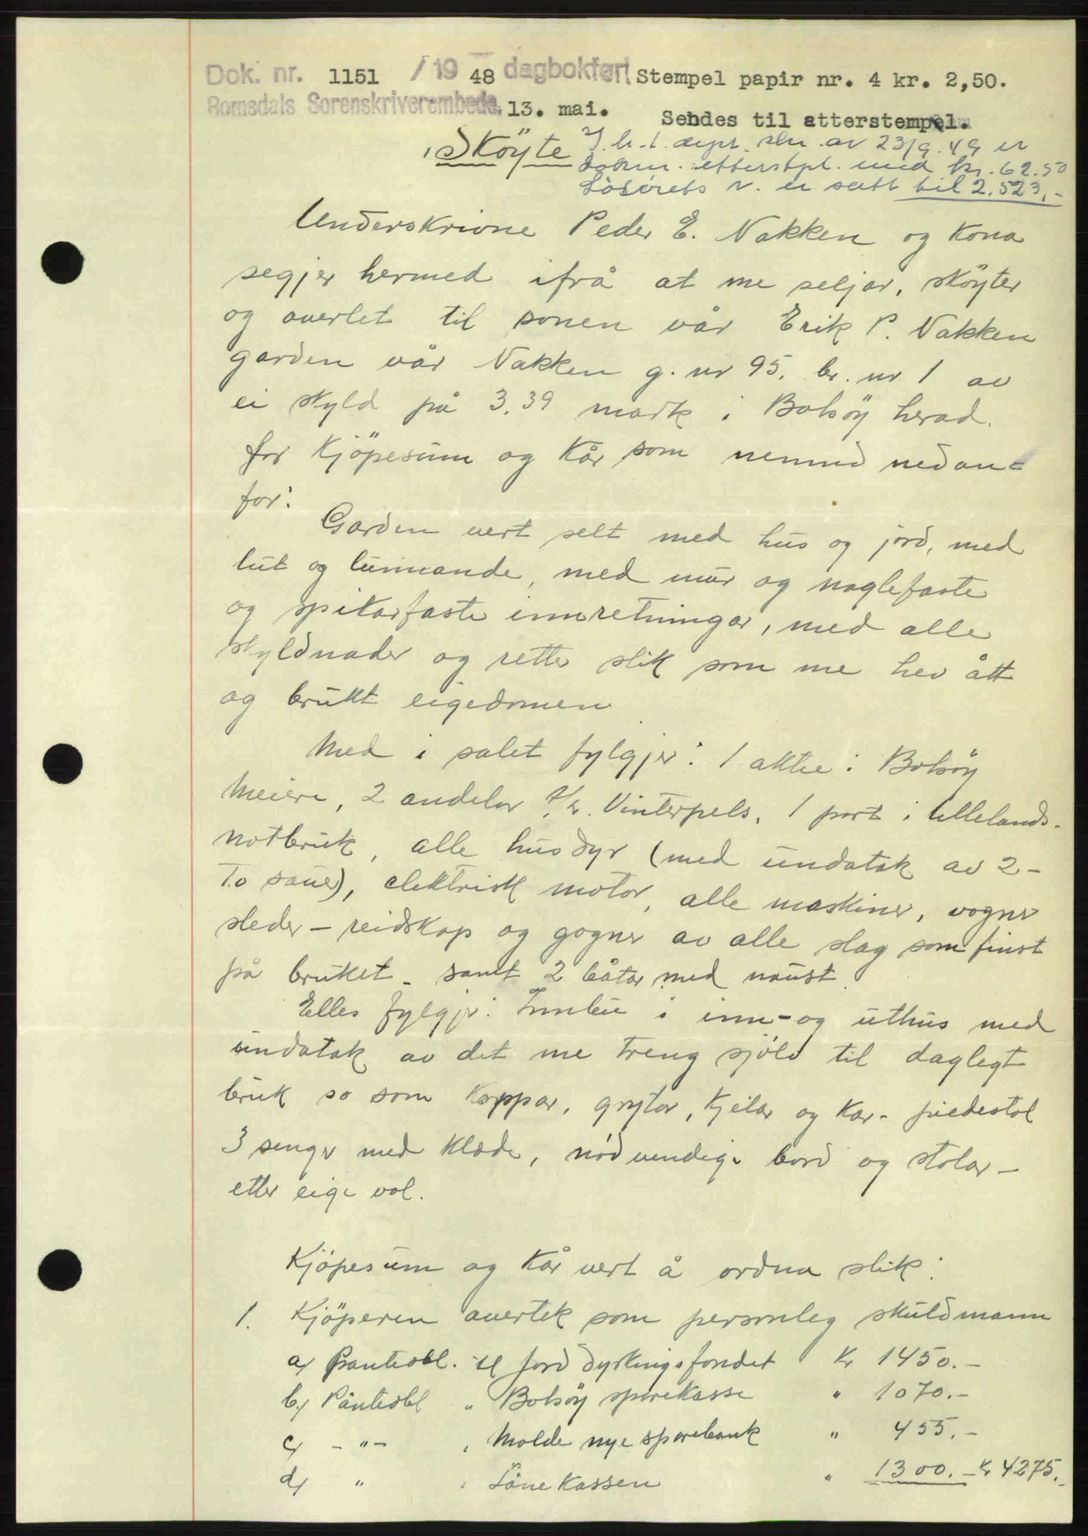 Dok. nr. 1151 / 19 48 dagbokført Stempel papir nr. 4 kr. 2,50.
Romsdals Sorenskriverembede. 13. mai. Sendes til etterstempel.
J. h. t. dept. skr. av 23/9.49 er
Skøyte dokum. etterstpl. med kr. 62.50
Løsørets v. er satt til 2.523,-
Underskrivne Peder E. Nakken og kona
segjer hermed ifrå at me seljar, skøyter
og overlet til sonen vår Erik P. Nakken
garden vår Nakken g. nr 95. br. nr 1 av
ei skyld på 3.39 mark i Bolsøy herad.
for kjøpesum og kår som nemnd nedan=
for:
Garden vert selt med hus og jord, med
lut og lunnande, med mur og naglefaste
og spikarfaste innretningar, med alle
skyldnader og retter slik som me hev ått
og brukt eigedomen
Med i salet fylgjer: 1 aktie i Bolsøy
Meieri, 2 andelar Vinterpels, 1 part i
notbruk, alle husdyr (med undatak av 2-
to sauer), elektrisk motor, alle maskiner, vogner
sleder - reidskap og gogner av alle slag som finst
på bruket - samt 2 båtar med naust.
Elles fylgjer: Innbu i inn- og uthus med
undatak av det me treng sjølv til daglegt
bruk so som koppar, grytor, kjelar og kar - piedestal
3 senger med klæde, nødvendige bord og stolar -
etter eige val.
Kjøpesum og kår vert å ordna slik:
1. Kjøperen overtek som personleg skuldmann
a) Panteobl. til Jorddyrkingsfondet kr 1450.-
b) Panteobl " Bolsøy sparekasse " 1070.-
c) - " - " Molde nye sparebank " 455.-
d) " " Lånekassen " 1300.- kr 4275.-